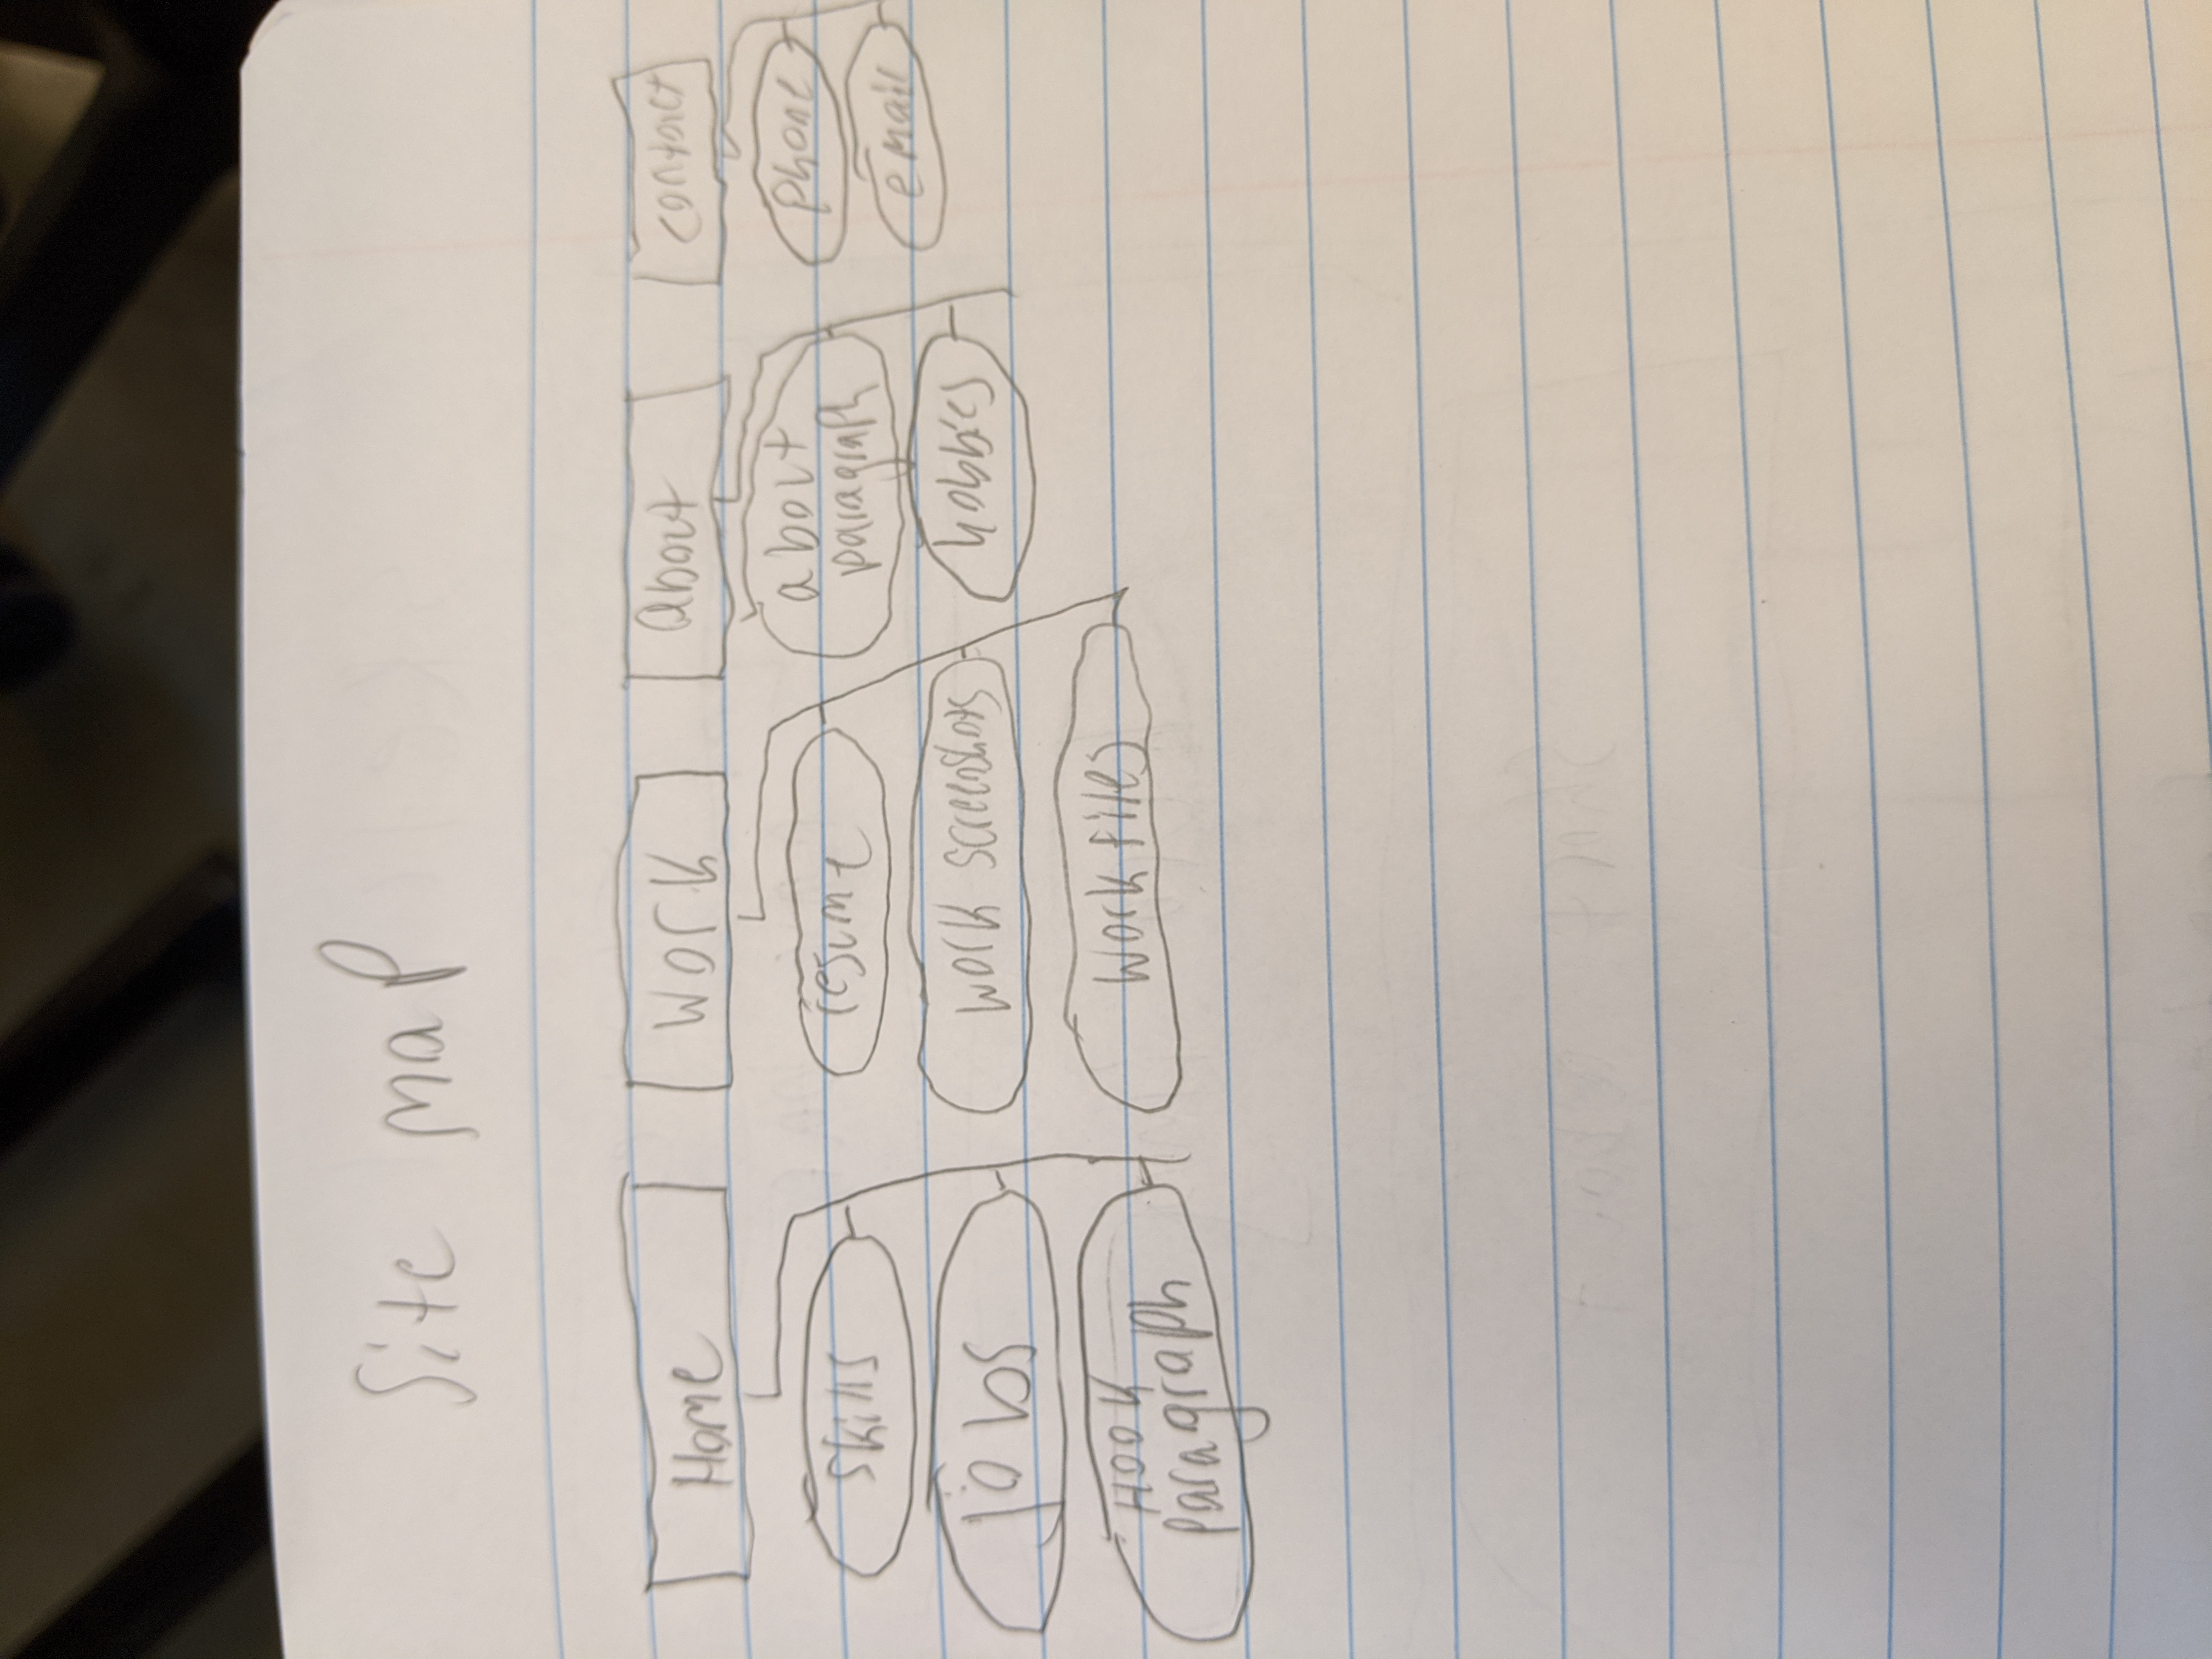 Site map
Home
Skills
jobs
Hook
paragraph
Work
resume
work screenshots
work
about
about
paragraph
hobbies
contact
phone
email